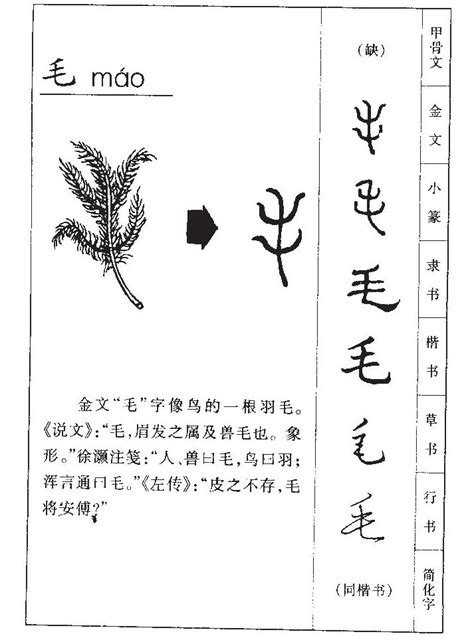 毛 máo
金文“毛”字像鸟的一根羽毛。
《说文》：“毛，眉发之属及兽毛也。象
形。”徐灏注笺：“人、兽曰毛，鸟曰羽；
浑言通曰毛。”《左传》：“皮之不存，毛
将安傅？”
（缺）
毛
毛
毛
毛
毛
毛
（同楷书）
甲骨文
金文
小篆
隶书
楷书
草书
行书
简化字